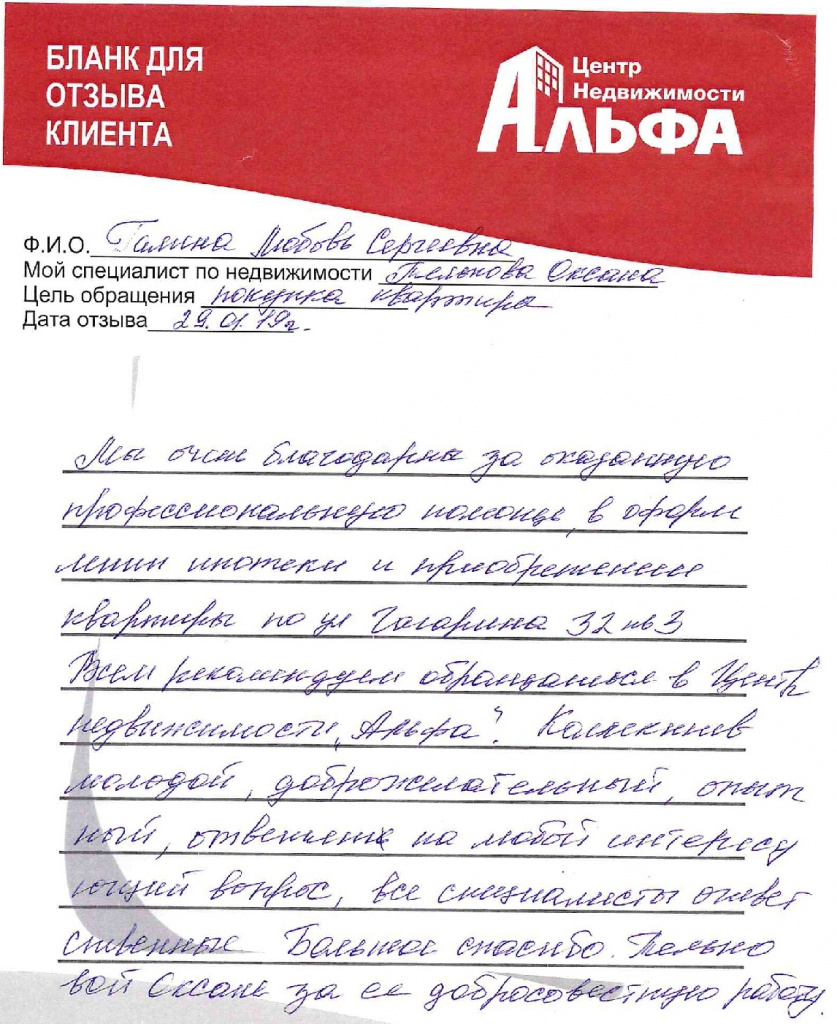 БЛАНК ДЛЯ
ОТЗЫВА
КЛИЕНТА
Центр
Недвижимости
АЛЬФА
Ф.И.О. Галина Любовь Сергеевна
Мой специалист по недвижимости Телькова Оксана
Цель обращения покупка квартира
Дата отзыва 29.01.19г.
Мы очень благодарны за оказанную
профессиональную помощь, в оформ
лении ипотеки и приобретении
квартиры по ул Гагарина 32 кв 3
Всем рекомендуем обращаться в Центр
недвижимости „Альфа". Коллектив
молодой, доброжелательный, опыт
ный, ответили на любой интересу
ющий вопрос, все специалисты ответ
ственные Большое спасибо. Телько
вой Оксане за ее добросовестную работу.